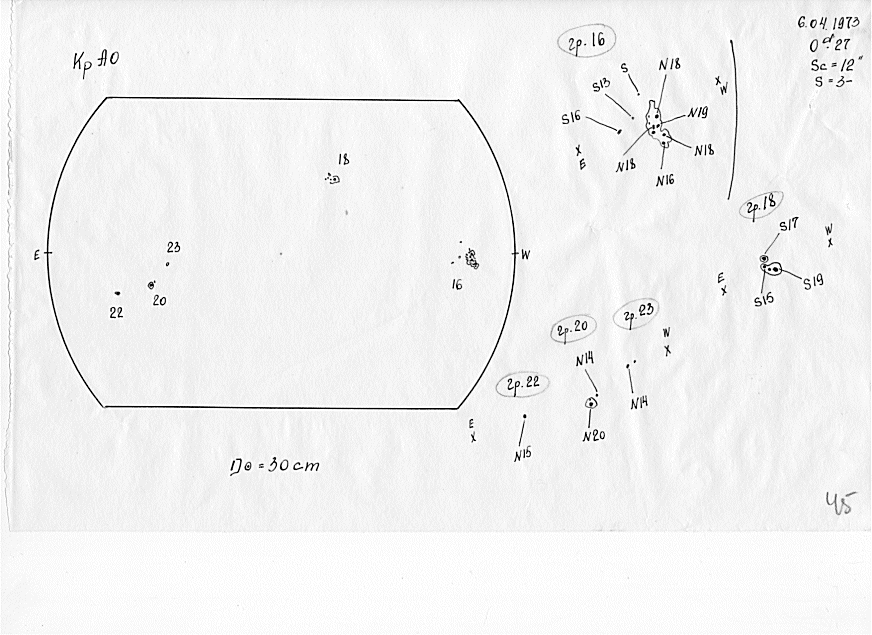 КрАО
6.04.1973
0ᵈ.27
Sc = 12"
S = 3-
гр. 16
S
N18
S13
S16
N19
N18
N18
N16
X
W
X
E
18
E
W
23
20
22
16
гр. 18
S17
S15
S19
W
X
E
X
гр. 23
гр. 20
гр. 22
N14
N14
N20
N15
W
X
E
X
D⊙ = 30 cm
45